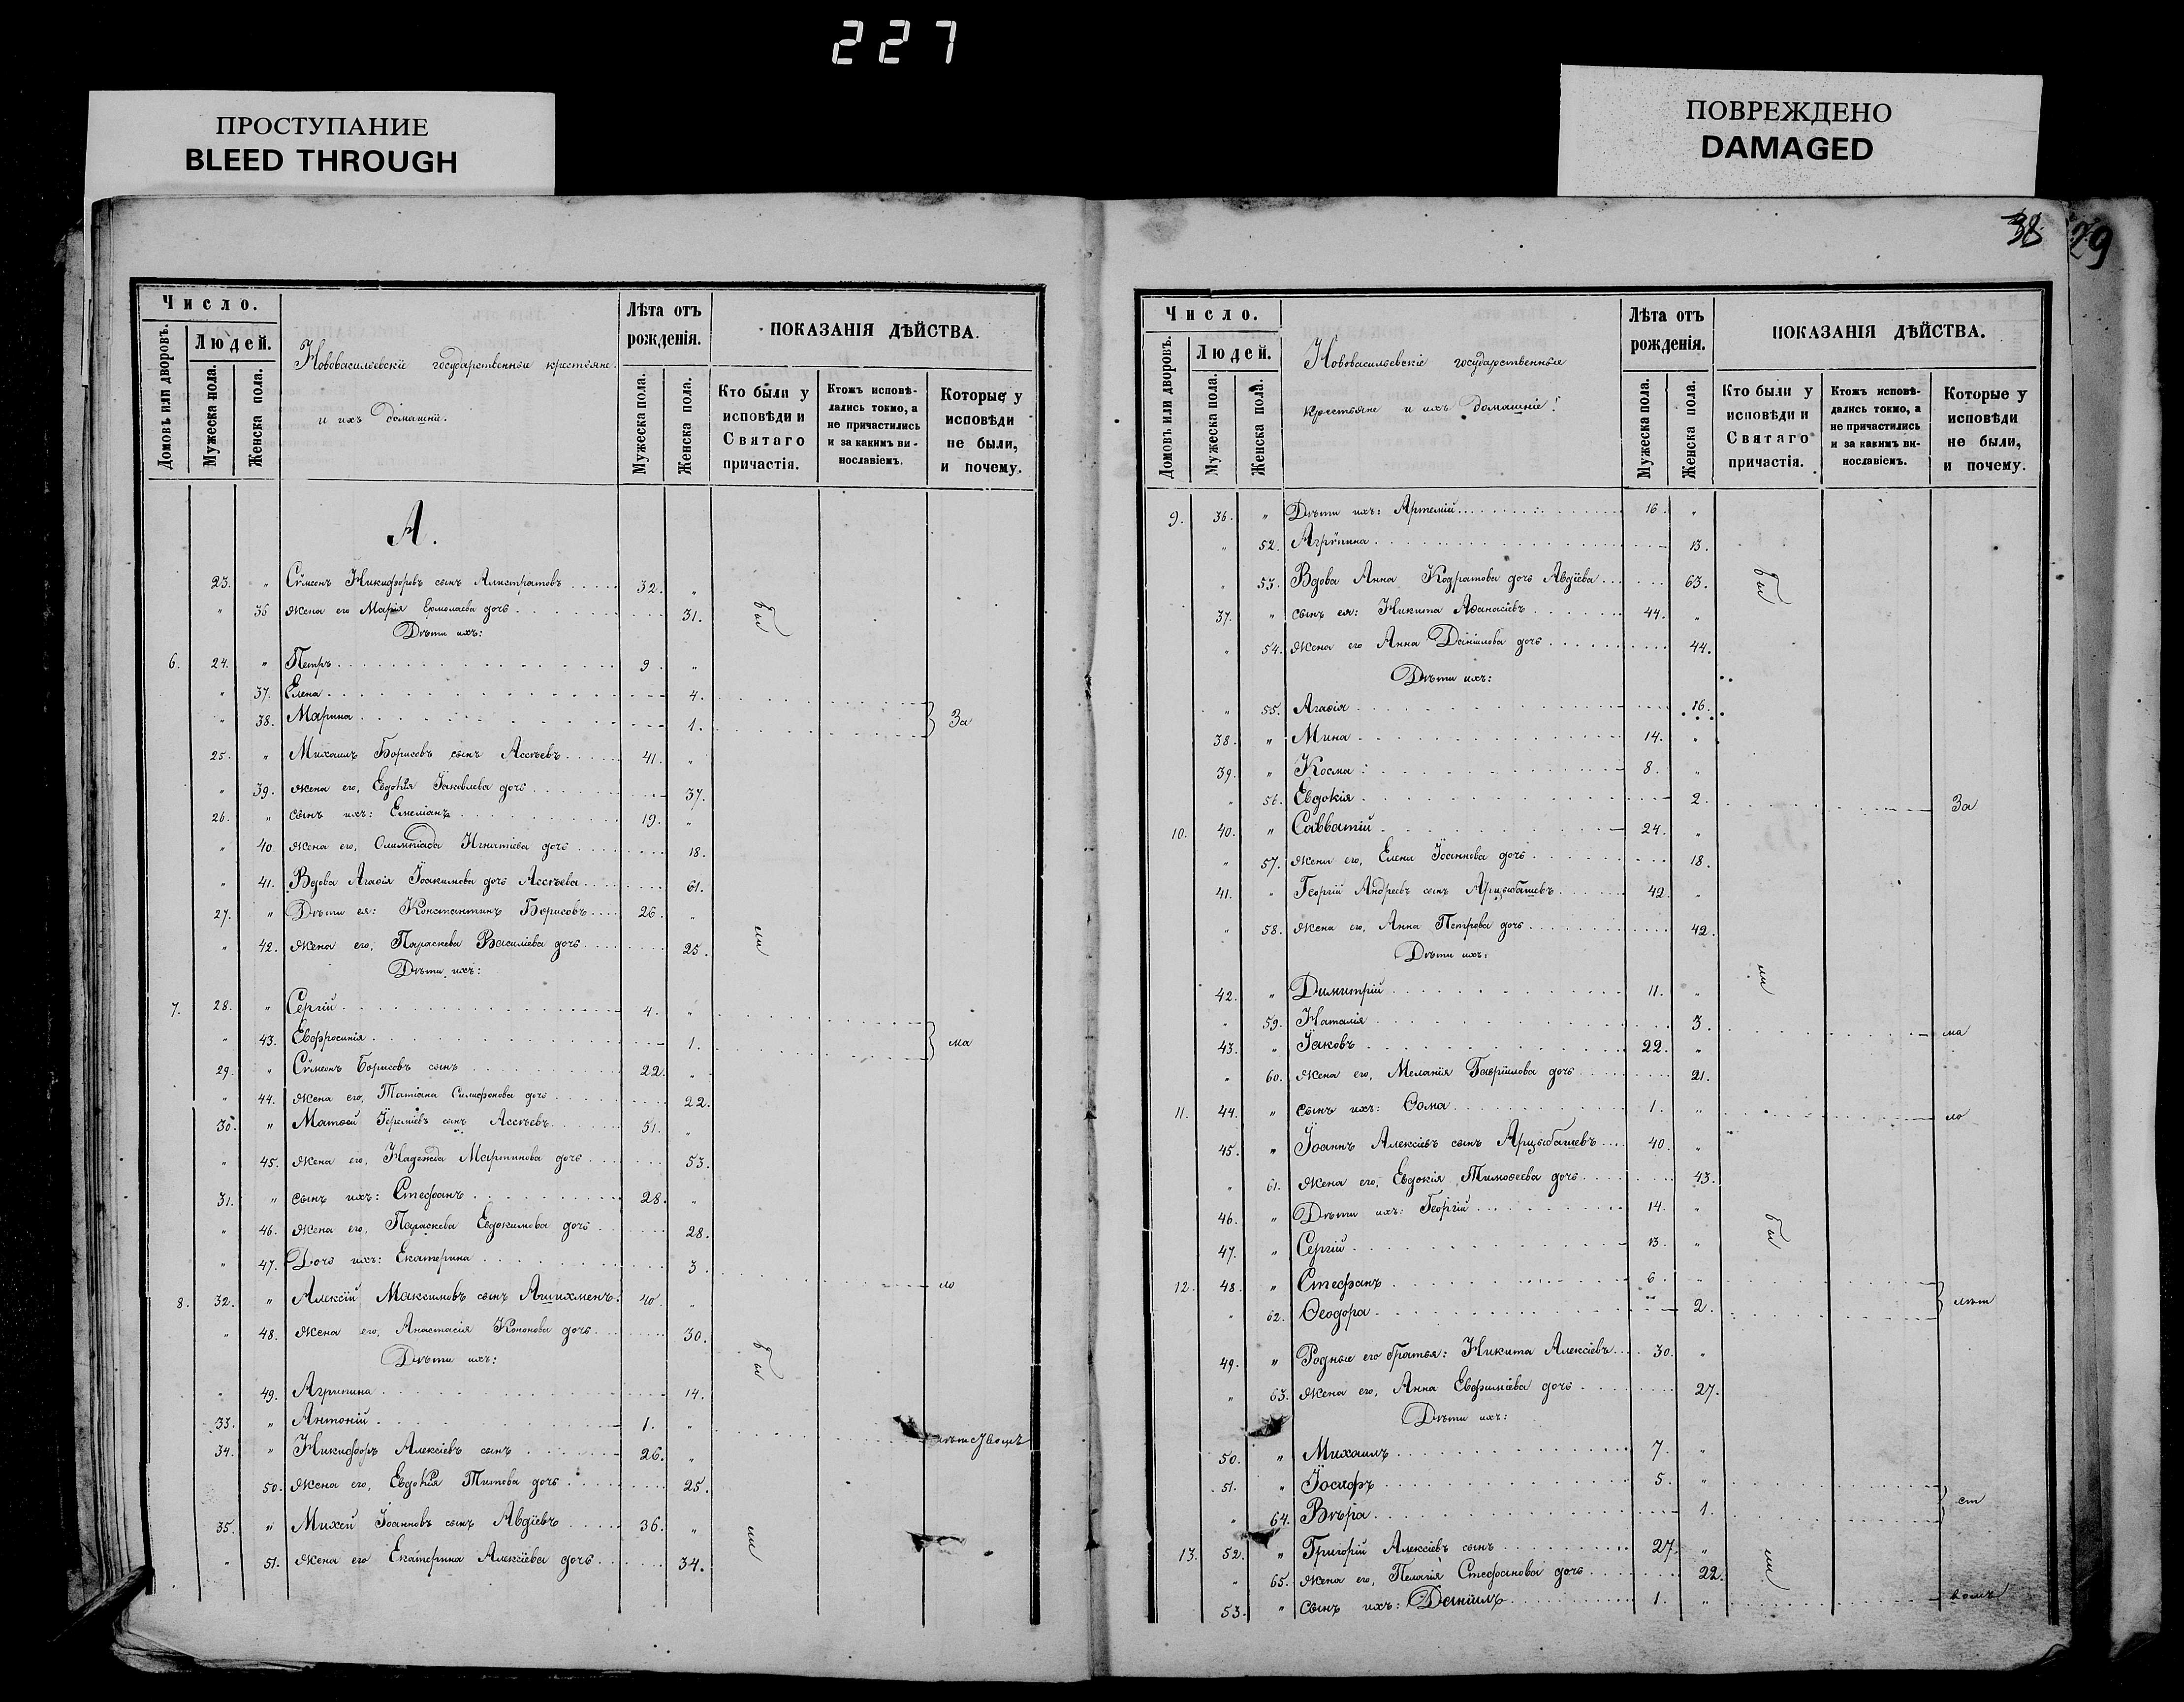 227
ПРОСТУПАНИЕ
BLEED THROUGH
ПОВРЕЖДЕНО
DAMAGED
Число.
Домовъ или дворовъ.
Людей.
Мужеска пола.
Женска пола.
Нововасильевскіе государственные крестьяне
и ихъ домашніе.
Лѣта отъ рожденія.
Мужеска пола.
Женска пола.
ПОКАЗАНІЯ ДѢЙСТВА.
Кто были у исповѣди и Святаго причастія.
Ктожъ исповѣ-дались токмо, а не причастились и за какимъ ви-нославіемъ.
Которые у исповѣди не были, и почему.
А.
23. " Сѷмеонъ Никифоровъ сынъ Алистратовъ 32. "
" 36 жена его Марія Ермолаева дочь 31. бы
Дѣти ихъ:
6. 24. " Петръ 9. "
" 37. Елена 4.
" 38. Марина 1. За
25. " Михаилъ Борисовъ сынъ Ассѣевъ 41. "
" 39. жена его, Евдокія Іаковлева дочь 37.
26. " сынъ ихъ: Емеліанъ 19. "
" 40. жена его, Олимпіада Игнатіева дочь 18.
" 41. Вдова Агаѳія Іоакимова дочь Ассѣева 61.
27. " Дѣти ея: Константинъ Борисовъ 26. "
" 42. жена его, Параскева Василіева дочь 25. ли
Дѣти ихъ:
7. 28. " Сергій 4. "
" 43. Евфросинія 1. ма
29. " Сѷмеонъ Борисовъ сынъ 22. "
" 44. жена его, Татіана дочь 22.
30. " Матѳей Іереміевъ сынъ Ассѣевъ 51. "
" 45. жена его, Надежда Мартинова дочь 53.
31. " сынъ ихъ: Стефанъ 28. "
" 46. жена его, Параскева Евдокимова дочь 28.
" 47. Дочь ихъ: Екатерина 3. ло
8. 32. " Алексій Максимовъ сынъ Ашихменъ 40. "
" 48. жена его, Анастасія Кононова дочь 30.
Дѣти ихъ: бы
" 49. Агрипина 14.
33. " Антоній 1. "
34. " Никифоръ Алексіевъ сынъ 26. "
50. жена его, Евдокія Титова дочь 25.
35. " Михей Іоанновъ сынъ Авдіевъ 36. " ли
" 51. жена его Екатерина Алексіева дочь 34.
38 29
Число.
Домовъ или дворовъ.
Людей.
Мужеска пола.
Женска пола.
Нововасильевскіе государственные
крестьяне и ихъ домашніе:
Лѣта отъ рожденія.
Мужеска пола.
Женска пола.
ПОКАЗАНІЯ ДѢЙСТВА.
Кто были у исповѣди и Святаго причастія.
Ктожъ исповѣ-дались токмо, а не причастились и за какимъ ви-нославіемъ.
Которые у исповѣди не были, и почему.
9. 36. " Дѣти ихъ: Артемій 16. "
" 52. Агрѷпина 13.
" 53. Вдова Анна Кодратова дочь Авдіева 63. бы
37. " сынъ ея: Никита Аѳанасіевъ 44. "
" 54. жена его Анна Даніилова дочь 44.
Дѣти ихъ:
" 55. Агаѳія 16.
38. " Мина 14. "
39. " Косма 8. "
" 56. Евдокія 2. За
10. 40. " Савватій 24. "
" 57. жена его, Елена Іоаннова дочь 18.
41. " Георгій Андреевъ сынъ Арцыбашевъ 42. "
" 58. жена его, Анна Петрова дочь 42.
Дѣти ихъ: ли
42. " Димитрій 11. "
" 59. Наталія 3. ма
43. " Іаковъ 22. "
" 60. жена его, Меланія Гавріилова дочь 21.
11. 44. " сынъ ихъ: Ѳома 1. " ло
45. " Іоаннъ Алексіевъ сынъ Арцыбашевъ 40. "
" 61. жена его, Евдокія Тимоѳеева дочь 43.
46. " Дѣти ихъ: Георгій 14. " бы
47. " Сергій 13. "
12. 48. " Стефанъ 6. "
" 62. Ѳеодора 2. лѣт
49. " Родные его братья: Никита Алексіевъ 30. "
" 63. жена его, Анна Евфиміева дочь 27.
Дѣти ихъ:
50. " Михаилъ 7. "
51. " Іосифъ 5. "
" 64. Вѣра 1. ст
13. 52. " Григорій Алексіевъ сынъ 27. "
" 65. жена его, Пелагія Стефанова дочь 22. ли
53. " сынъ ихъ: Даніилъ 1. " вомъ